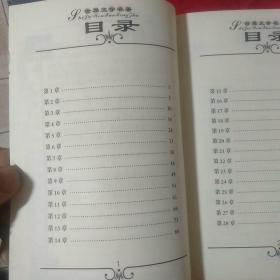 世界文学名著
ShiJieWenXueMingZhu
目录
第1章 1
第2章
第3章
第4章
第5章 24
第6章
第7章
第8章
第9章
第10章
第11章
第12章
第13章
第14章
1
世界文学名著
ShiJieWenXue
目录
第15章
第16章
第17章
第18章
第19章
第20章
第21章
第22章
第23章
第24章
第25章
第26章
第27章
第28章